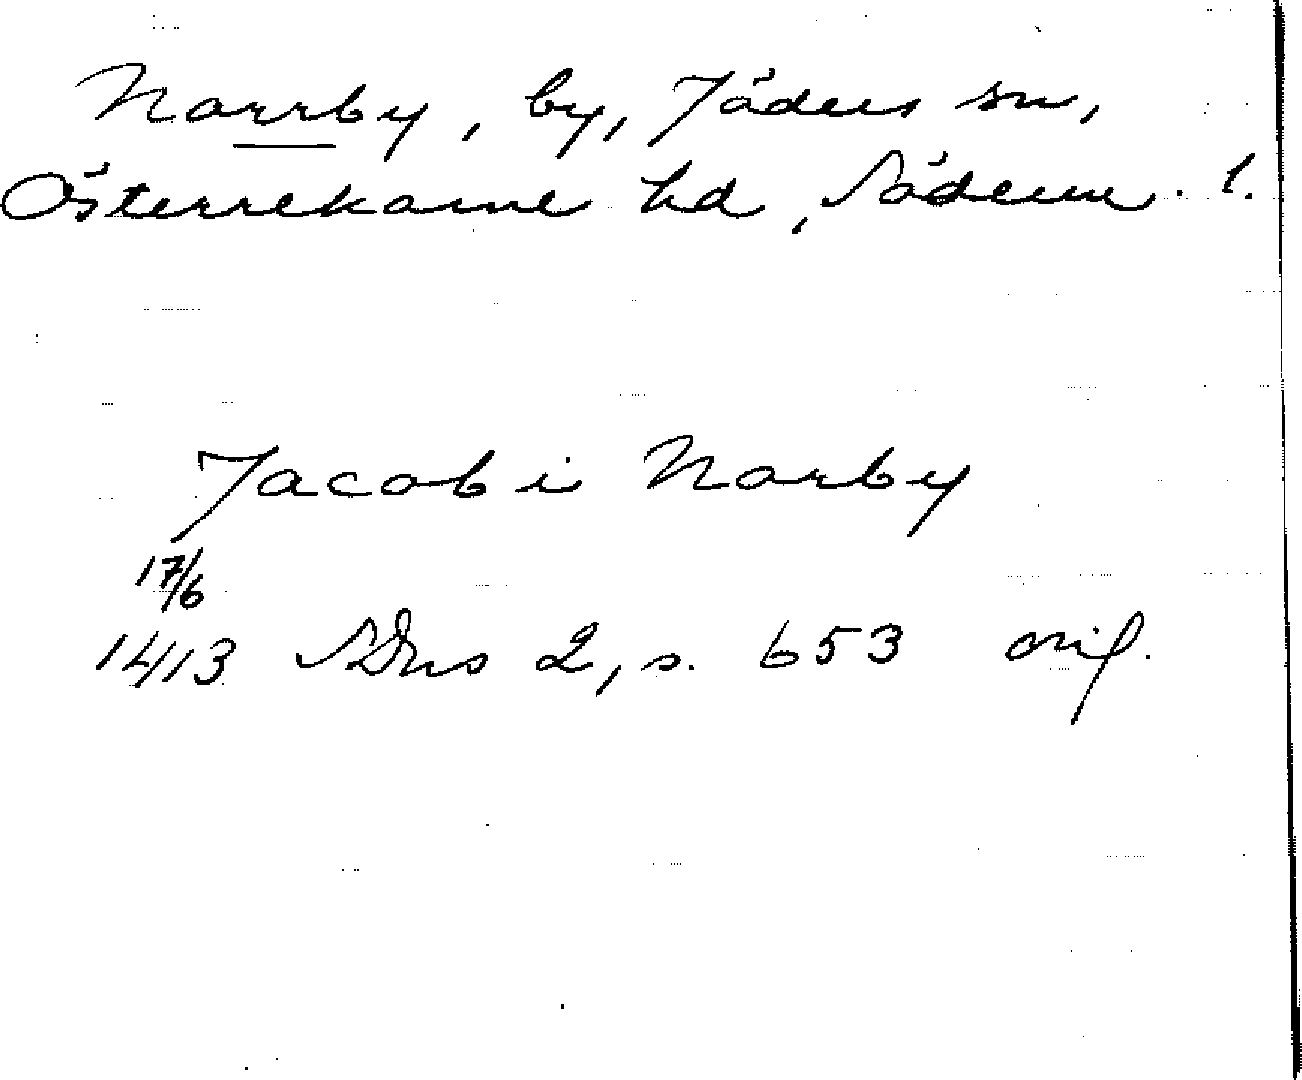 Narrby, by, Jäders sn,
Österrekarne hd, Söderm. l.
Jacob i Narby
17/6
1413 SDns 2, s. 653 orig.